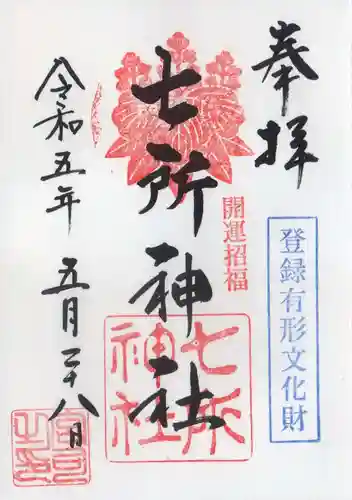 奉拝
登録有形文化財
開運招福
七所神社
七所
神社
令和五年五月二十八日
宮司之印